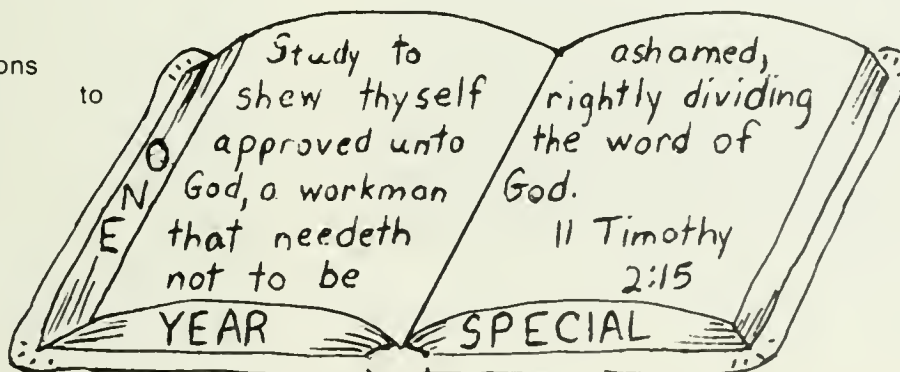 ons
to
Study to
shew thyself
approved unto
God, a workman
that needeth
not to be
ashamed,
rightly dividing
the word of
God.
II Timothy
2:15
ONE
YEAR SPECIAL